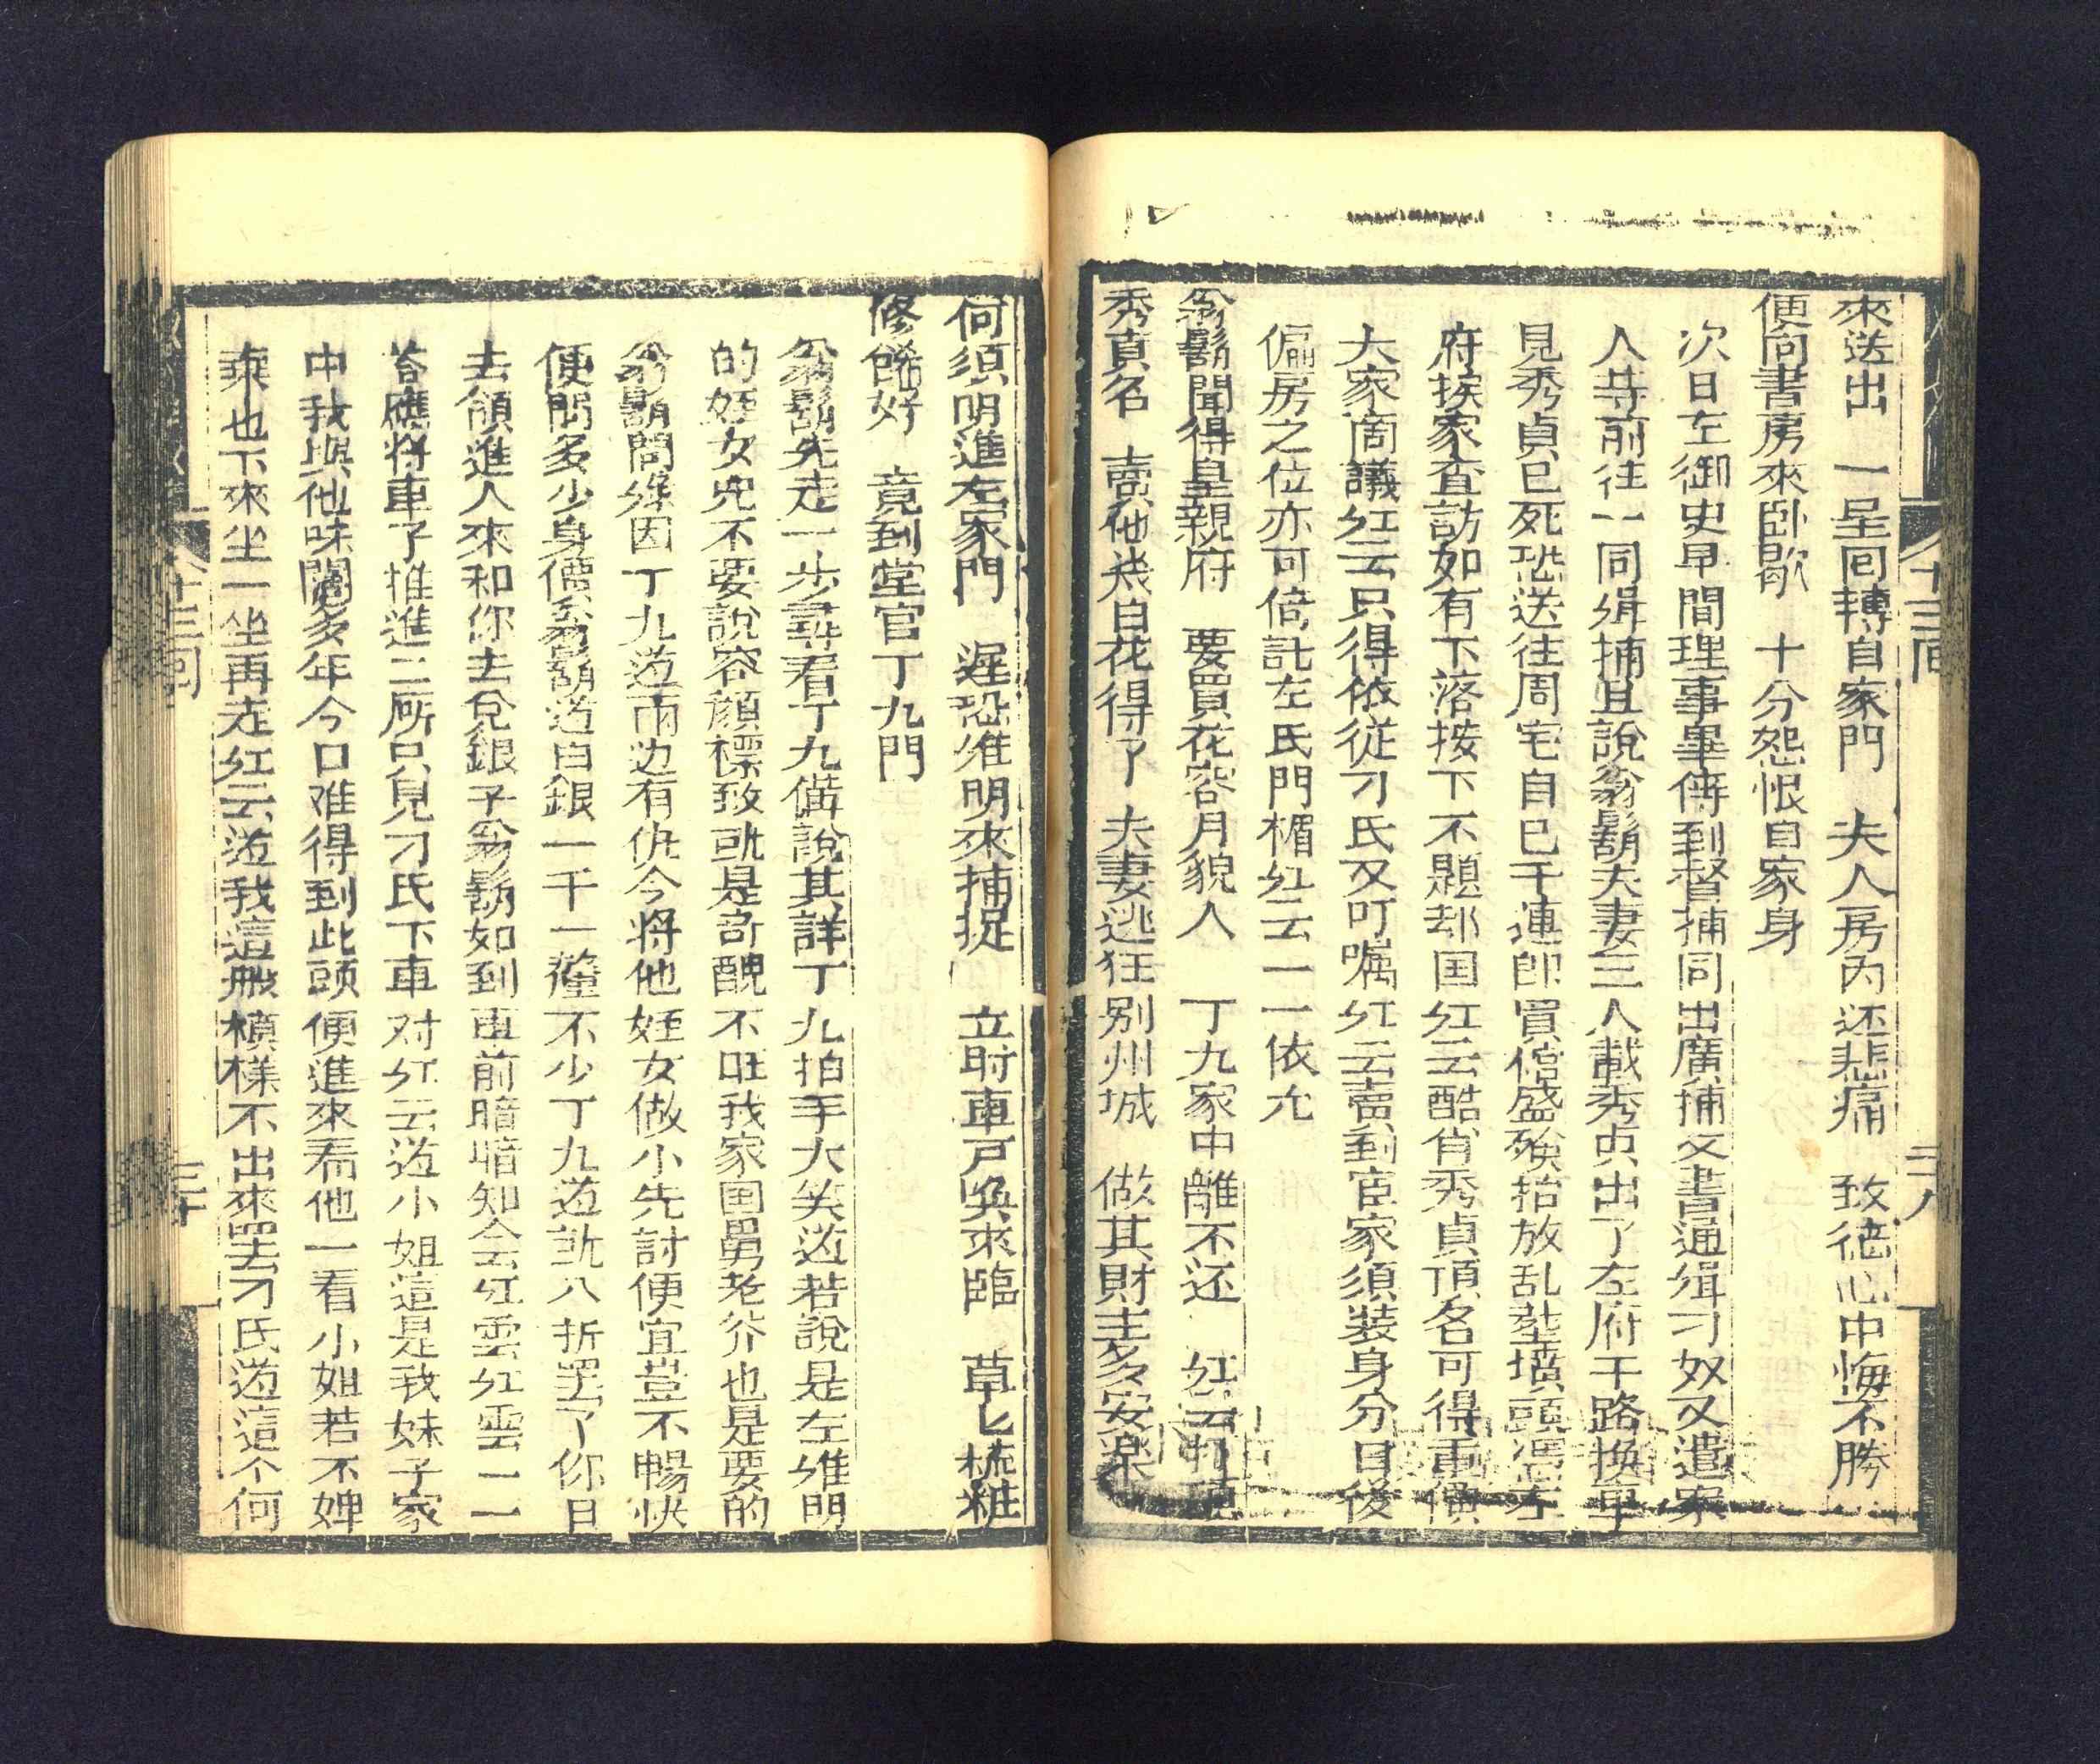 來送出　一呈回轉自家門　夫人房內还悲痛　致徒心中悔不勝
便向書房來卧歇　十分怨恨自家身
次日左御史早間理事畢傳到督捕同出廣捕文書通緝刁奴又遣家
人寺前往一同緝捕且說翁鬍夫妻三人載秀贞出了左府干路換車
見秀貞已死恐送往周宅自巳干連即買棺盛殮抬放乱塟墳頭凴左
府挨家查訪如有下落按下不題却国红云酷肖秀貞頂名可得重價
大家商議红云只得依従刁氏又叮嘱红云賣到宦家須装身分日後
偏房之位亦可倍託左氏門楣红云一一依允
翁鬍聞得皇親府　要買花容月貌人　丁九家中離不还　红云打頂
秀貞名　賣他幾白花得了　夫妻逃狂别州城　做其財主多安楽
何須明進左家門　遅恐维明來捕捉　立時車戶喚來臨　草匕梳粧
修餙好　竟到堂官丁九門
翁鬍先走一步尋看丁九備說其詳丁九拍手大笑道若說是左维明
的姪女児不要說容顔標致就是奇醜不旺我家国舅老爷也是要的
翁鬍問缘因丁九道両边有仇今將他姪女做小先討便宜豈不暢快
便問多少身價翁鬍道白銀一千一釐不少丁九道就八折罢了你日
去領進人來和你去兌銀子翁鬍如到車前暗暗知会红雲红雲一一
荅應将車子推進二厮只見刁氏下車对红云道小姐這是我妹子家
中我與他味闊多年今口难得到此頭便進來看他一看小姐若不婢
棄也下來坐一坐再走红云道我這般模樣不出來罢去刁氏道這个何
十三回
二八
十三回
三十